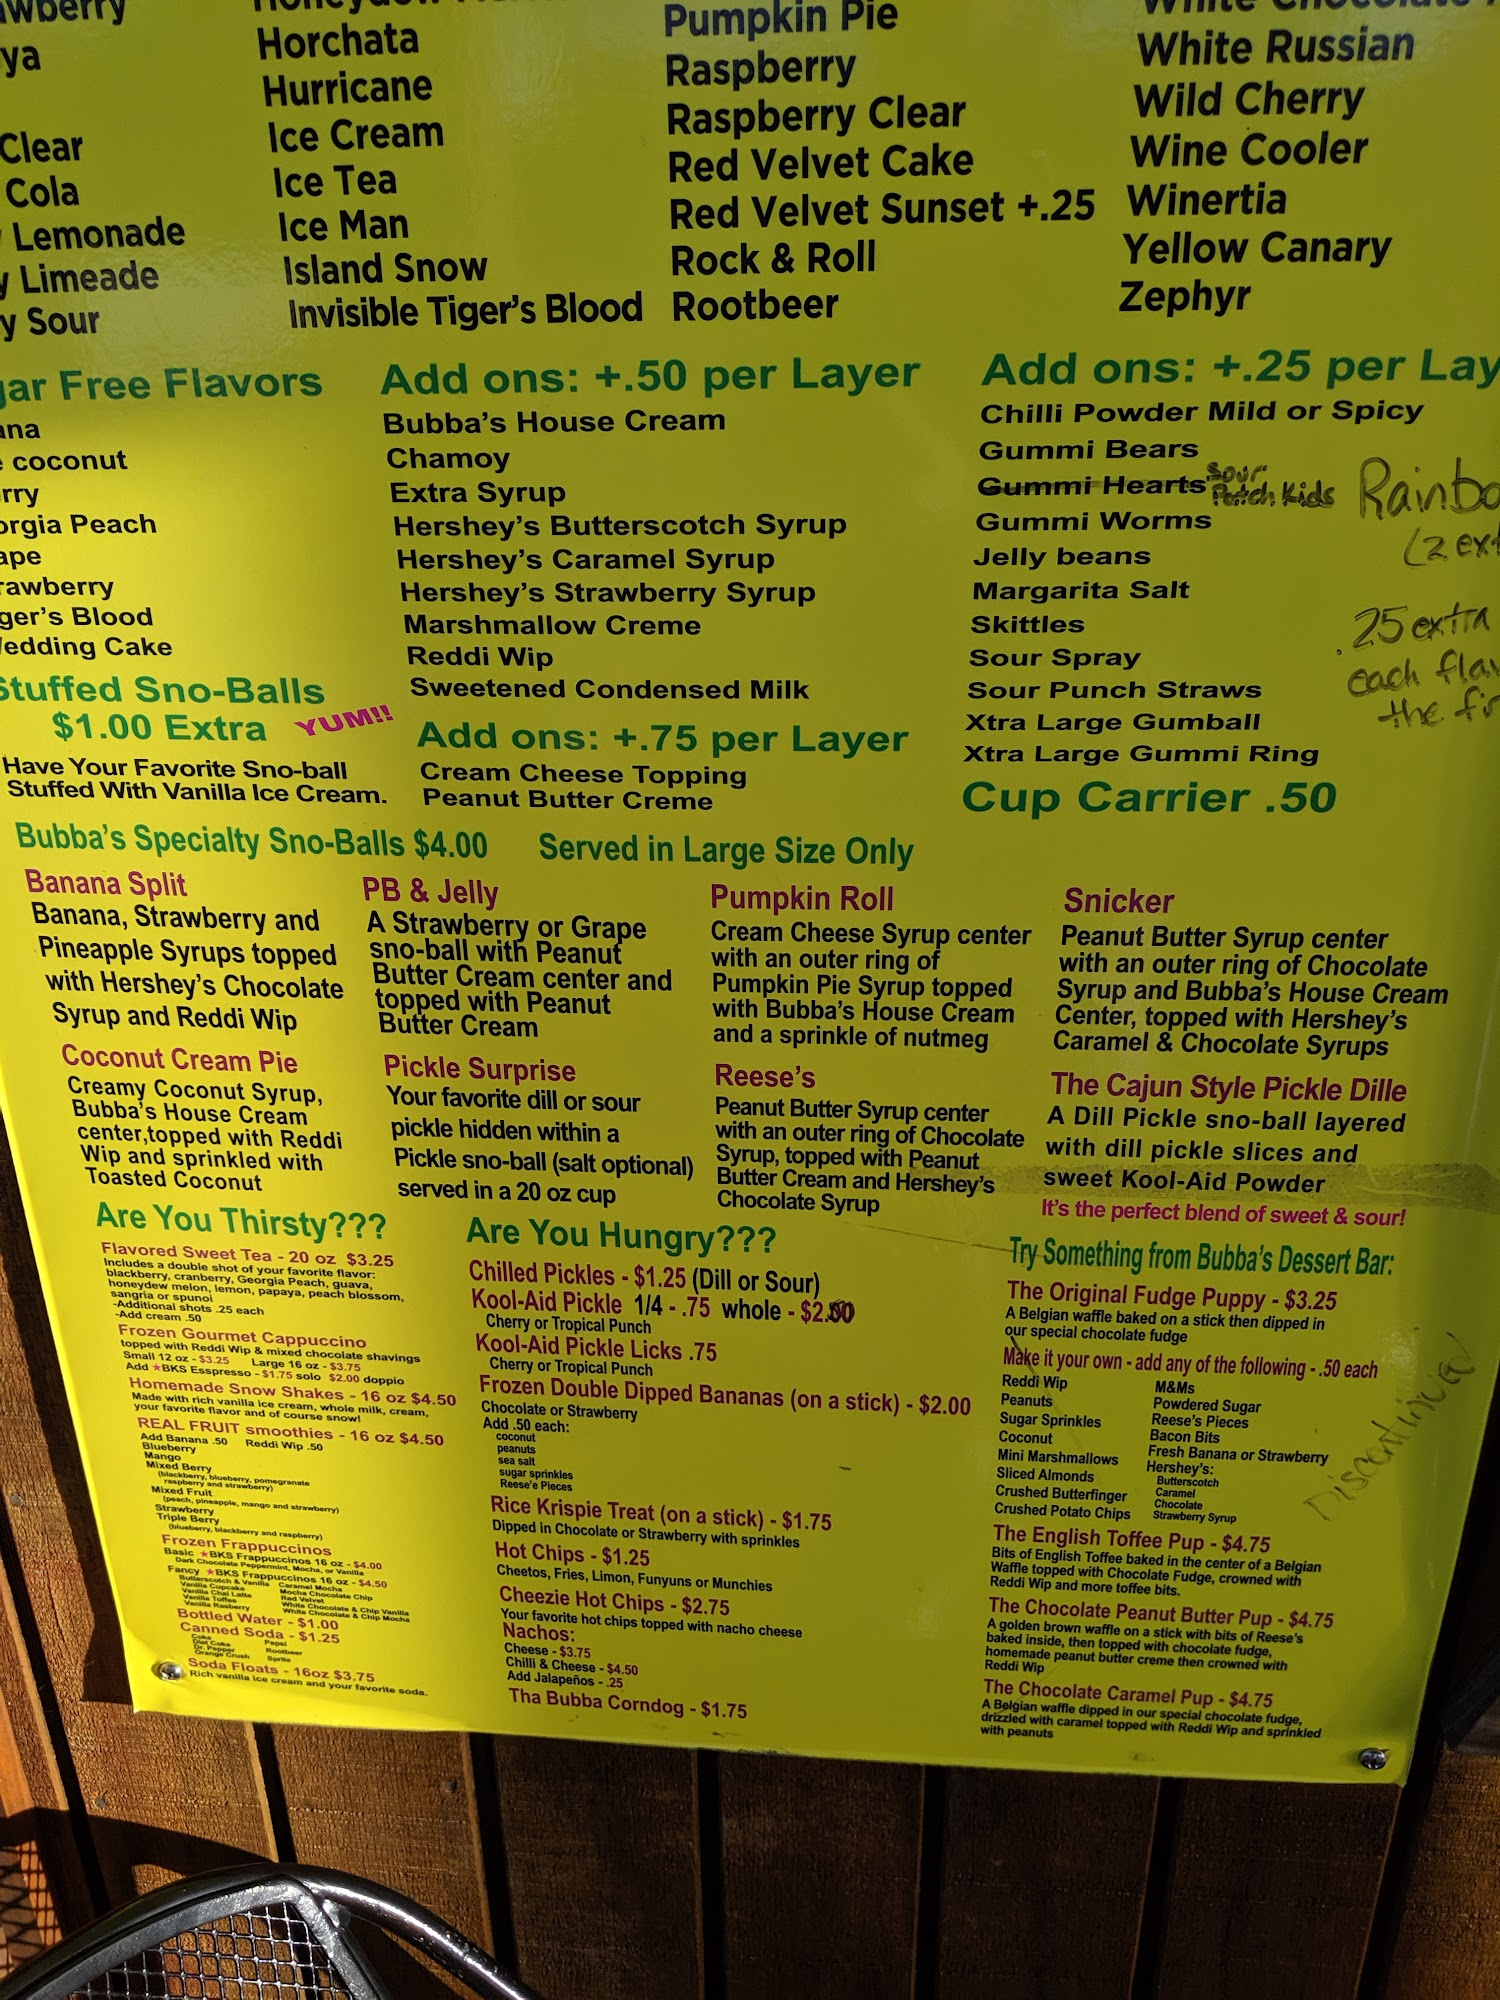 Horchata
Hurricane
Ice Cream
Ice Tea
Ice Man
Island Snow
Invisible Tiger's Blood
Clear
Cola
Lemonade
Limeade
Sour
Pumpkin Pie
Raspberry
Raspberry Clear
Red Velvet Cake
Red Velvet Sunset +.25
Rock & Roll
Rootbeer
White Russian
Wild Cherry
Wine Cooler
Winertia
Yellow Canary
Zephyr
Free Flavors
coconut
Peach
Blood
Cake
Stuffed Sno-Balls
$1.00 Extra YUM!!
Have Your Favorite Sno-ball
Stuffed With Vanilla Ice Cream.
Add ons: +.50 per Layer
Bubba's House Cream
Chamoy
Extra Syrup
Hershey's Butterscotch Syrup
Hershey's Caramel Syrup
Hershey's Strawberry Syrup
Marshmallow Creme
Reddi Wip
Sweetened Condensed Milk
Add ons: +.75 per Layer
Cream Cheese Topping
Peanut Butter Creme
Add ons: +.25 per
Chilli Powder Mild or Spicy
Gummi Bears
Gummi Hearts Sour Patch Kids
Gummi Worms
Jelly beans
Margarita Salt
Skittles
Sour Spray
Sour Punch Straws
Xtra Large Gumball
Xtra Large Gummi Ring
Cup Carrier .50
(2
.25 extra
each
the
Bubba's Specialty Sno-Balls $4.00 Served in Large Size Only
Banana Split
Banana, Strawberry and
Pineapple Syrups topped
with Hershey's Chocolate
Syrup and Reddi Wip
PB & Jelly
A Strawberry or Grape
sno-ball with Peanut
Butter Cream center and
topped with Peanut
Butter Cream
Pumpkin Roll
Cream Cheese Syrup center
with an outer ring of
Pumpkin Pie Syrup topped
with Bubba's House Cream
and a sprinkle of nutmeg
Snicker
Peanut Butter Syrup center
with an outer ring of Chocolate
Syrup and Bubba's House Cream
Center, topped with Hershey's
Caramel & Chocolate Syrups
Coconut Cream Pie
Creamy Coconut Syrup,
Bubba's House Cream
center,topped with Reddi
Wip and sprinkled with
Toasted Coconut
Pickle Surprise
Your favorite dill or sour
pickle hidden within a
Pickle sno-ball (salt optional)
served in a 20 oz cup
Reese's
Peanut Butter Syrup center
with an outer ring of Chocolate
Syrup, topped with Peanut
Butter Cream and Hershey's
Chocolate Syrup
The Cajun Style Pickle Dille
A Dill Pickle sno-ball layered
with dill pickle slices and
sweet Kool-Aid Powder
It's the perfect blend of sweet & sour!
Are You Thirsty???
Flavored Sweet Tea - 20 oz $3.25
Includes a double shot of your favorite flavor:
blackberry, cranberry, Georgia Peach, guava,
honeydew melon, lemon, papaya, peach blossom,
sangria or spunoi
-Additional shots .25 each
-Add cream .50
Frozen Gourmet Cappuccino
topped with Reddi Wip & mixed chocolate shavings
Small 12 oz - $3.25 Large 16 oz - $3.75
Add ★BKS Esspresso - $1.75 solo $2.00 doppio
Homemade Snow Shakes - 16 oz $4.50
Made with rich vanilla ice cream, whole milk, cream,
your favorite flavor and of course snow!
REAL FRUIT smoothies - 16 oz $4.50
Add Banana .50 Reddi Wip .50
Blueberry
Mango
Mixed Berry
(blackberry, blueberry, pomegranate
raspberry and strawberry)
Mixed Fruit
(peach, pineapple, mango and strawberry)
Strawberry
Triple Berry
(blueberry, blackberry and raspberry)
Frozen Frappuccinos
Basic ★BKS Frappuccinos 16 oz - $4.00
Dark Chocolate Peppermint, Mocha, or Vanilla
Fancy ★BKS Frappuccinos 16 oz - $4.50
Butterscotch & Vanilla Caramel Mocha
Vanilla Cupcake Mocha Chocolate Chip
Vanilla Chai Latte Red Velvet
Vanilla Toffee White Chocolate & Chip Vanilla
Vanilla Rasberry White Chocolate & Chip Mocha
Bottled Water - $1.00
Canned Soda - $1.25
Coke Pepsi
Diet Coke Rootbeer
Dr. Pepper Sprite
Orange Crush
Soda Floats - 16oz $3.75
Rich vanilla ice cream and your favorite soda.
Are You Hungry???
Chilled Pickles - $1.25 (Dill or Sour)
Kool-Aid Pickle 1/4 - .75 whole - $2.00
Cherry or Tropical Punch
Kool-Aid Pickle Licks .75
Cherry or Tropical Punch
Frozen Double Dipped Bananas (on a stick) - $2.00
Chocolate or Strawberry
Add .50 each:
coconut
peanuts
sea salt
sugar sprinkles
Reese'e Pieces
Rice Krispie Treat (on a stick) - $1.75
Dipped in Chocolate or Strawberry with sprinkles
Hot Chips - $1.25
Cheetos, Fries, Limon, Funyuns or Munchies
Cheezie Hot Chips - $2.75
Your favorite hot chips topped with nacho cheese
Nachos:
Cheese - $3.75
Chilli & Cheese - $4.50
Add Jalapeños - .25
Tha Bubba Corndog - $1.75
Try Something from Bubba's Dessert Bar:
The Original Fudge Puppy - $3.25
A Belgian waffle baked on a stick then dipped in
our special chocolate fudge
Make it your own - add any of the following - .50 each
Reddi Wip
Peanuts
Sugar Sprinkles
Coconut
Mini Marshmallows
Sliced Almonds
Crushed Butterfinger
Crushed Potato Chips
M&Ms
Powdered Sugar
Reese's Pieces
Bacon Bits
Fresh Banana or Strawberry
Hershey's:
Butterscotch
Caramel
Chocolate
Strawberry Syrup
The English Toffee Pup - $4.75
Bits of English Toffee baked in the center of a Belgian
Waffle topped with Chocolate Fudge, crowned with
Reddi Wip and more toffee bits.
The Chocolate Peanut Butter Pup - $4.75
A golden brown waffle on a stick with bits of Reese's
baked inside, then topped with chocolate fudge,
homemade peanut butter creme then crowned with
Reddi Wip
The Chocolate Caramel Pup - $4.75
A Belgian waffle dipped in our special chocolate fudge,
drizzled with caramel topped with Reddi Wip and sprinkled
with peanuts